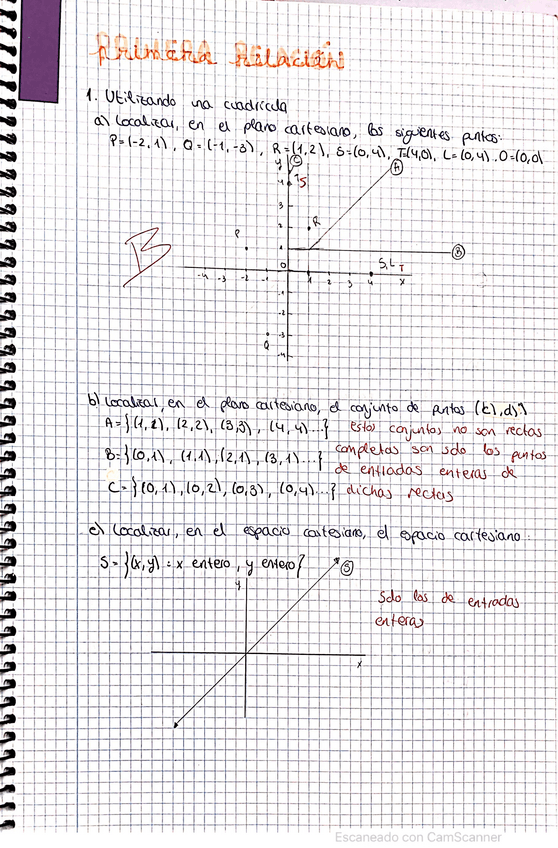 PRIMERA RELACIÓN
1. Utilizando una cuadrícula
a) Localizar, en el plano cartesiano, los siguientes puntos:
P=(-2,1), Q=(-1,-3), R=(1,2), S=(0,4), T=(4,0), L=(0,4), O=(0,0)
y C
4 S A
3
P 2 R
B 1 B
0 S,L T
-4 -3 -2 -1 1 2 3 4 x
-1
-2
-3
Q -4
b) Localizar, en el plano cartesiano, el conjunto de puntos
A={(1,1), (2,2), (3,3), (4,4)...} Estos conjuntos no son rectas
B={(0,1), (1,1), (2,1), (3,1)...} completas son solo los puntos
de entradas enteras de
C={(0,1), (0,2), (0,3), (0,4)...} dichas rectas
c) Localizar, en el espacio cartesiano, el espacio cartesiano:
S={(x,y): x entero, y entero} S
y
Solo los de entradas
enteras
x
Escaneado con CamScanner